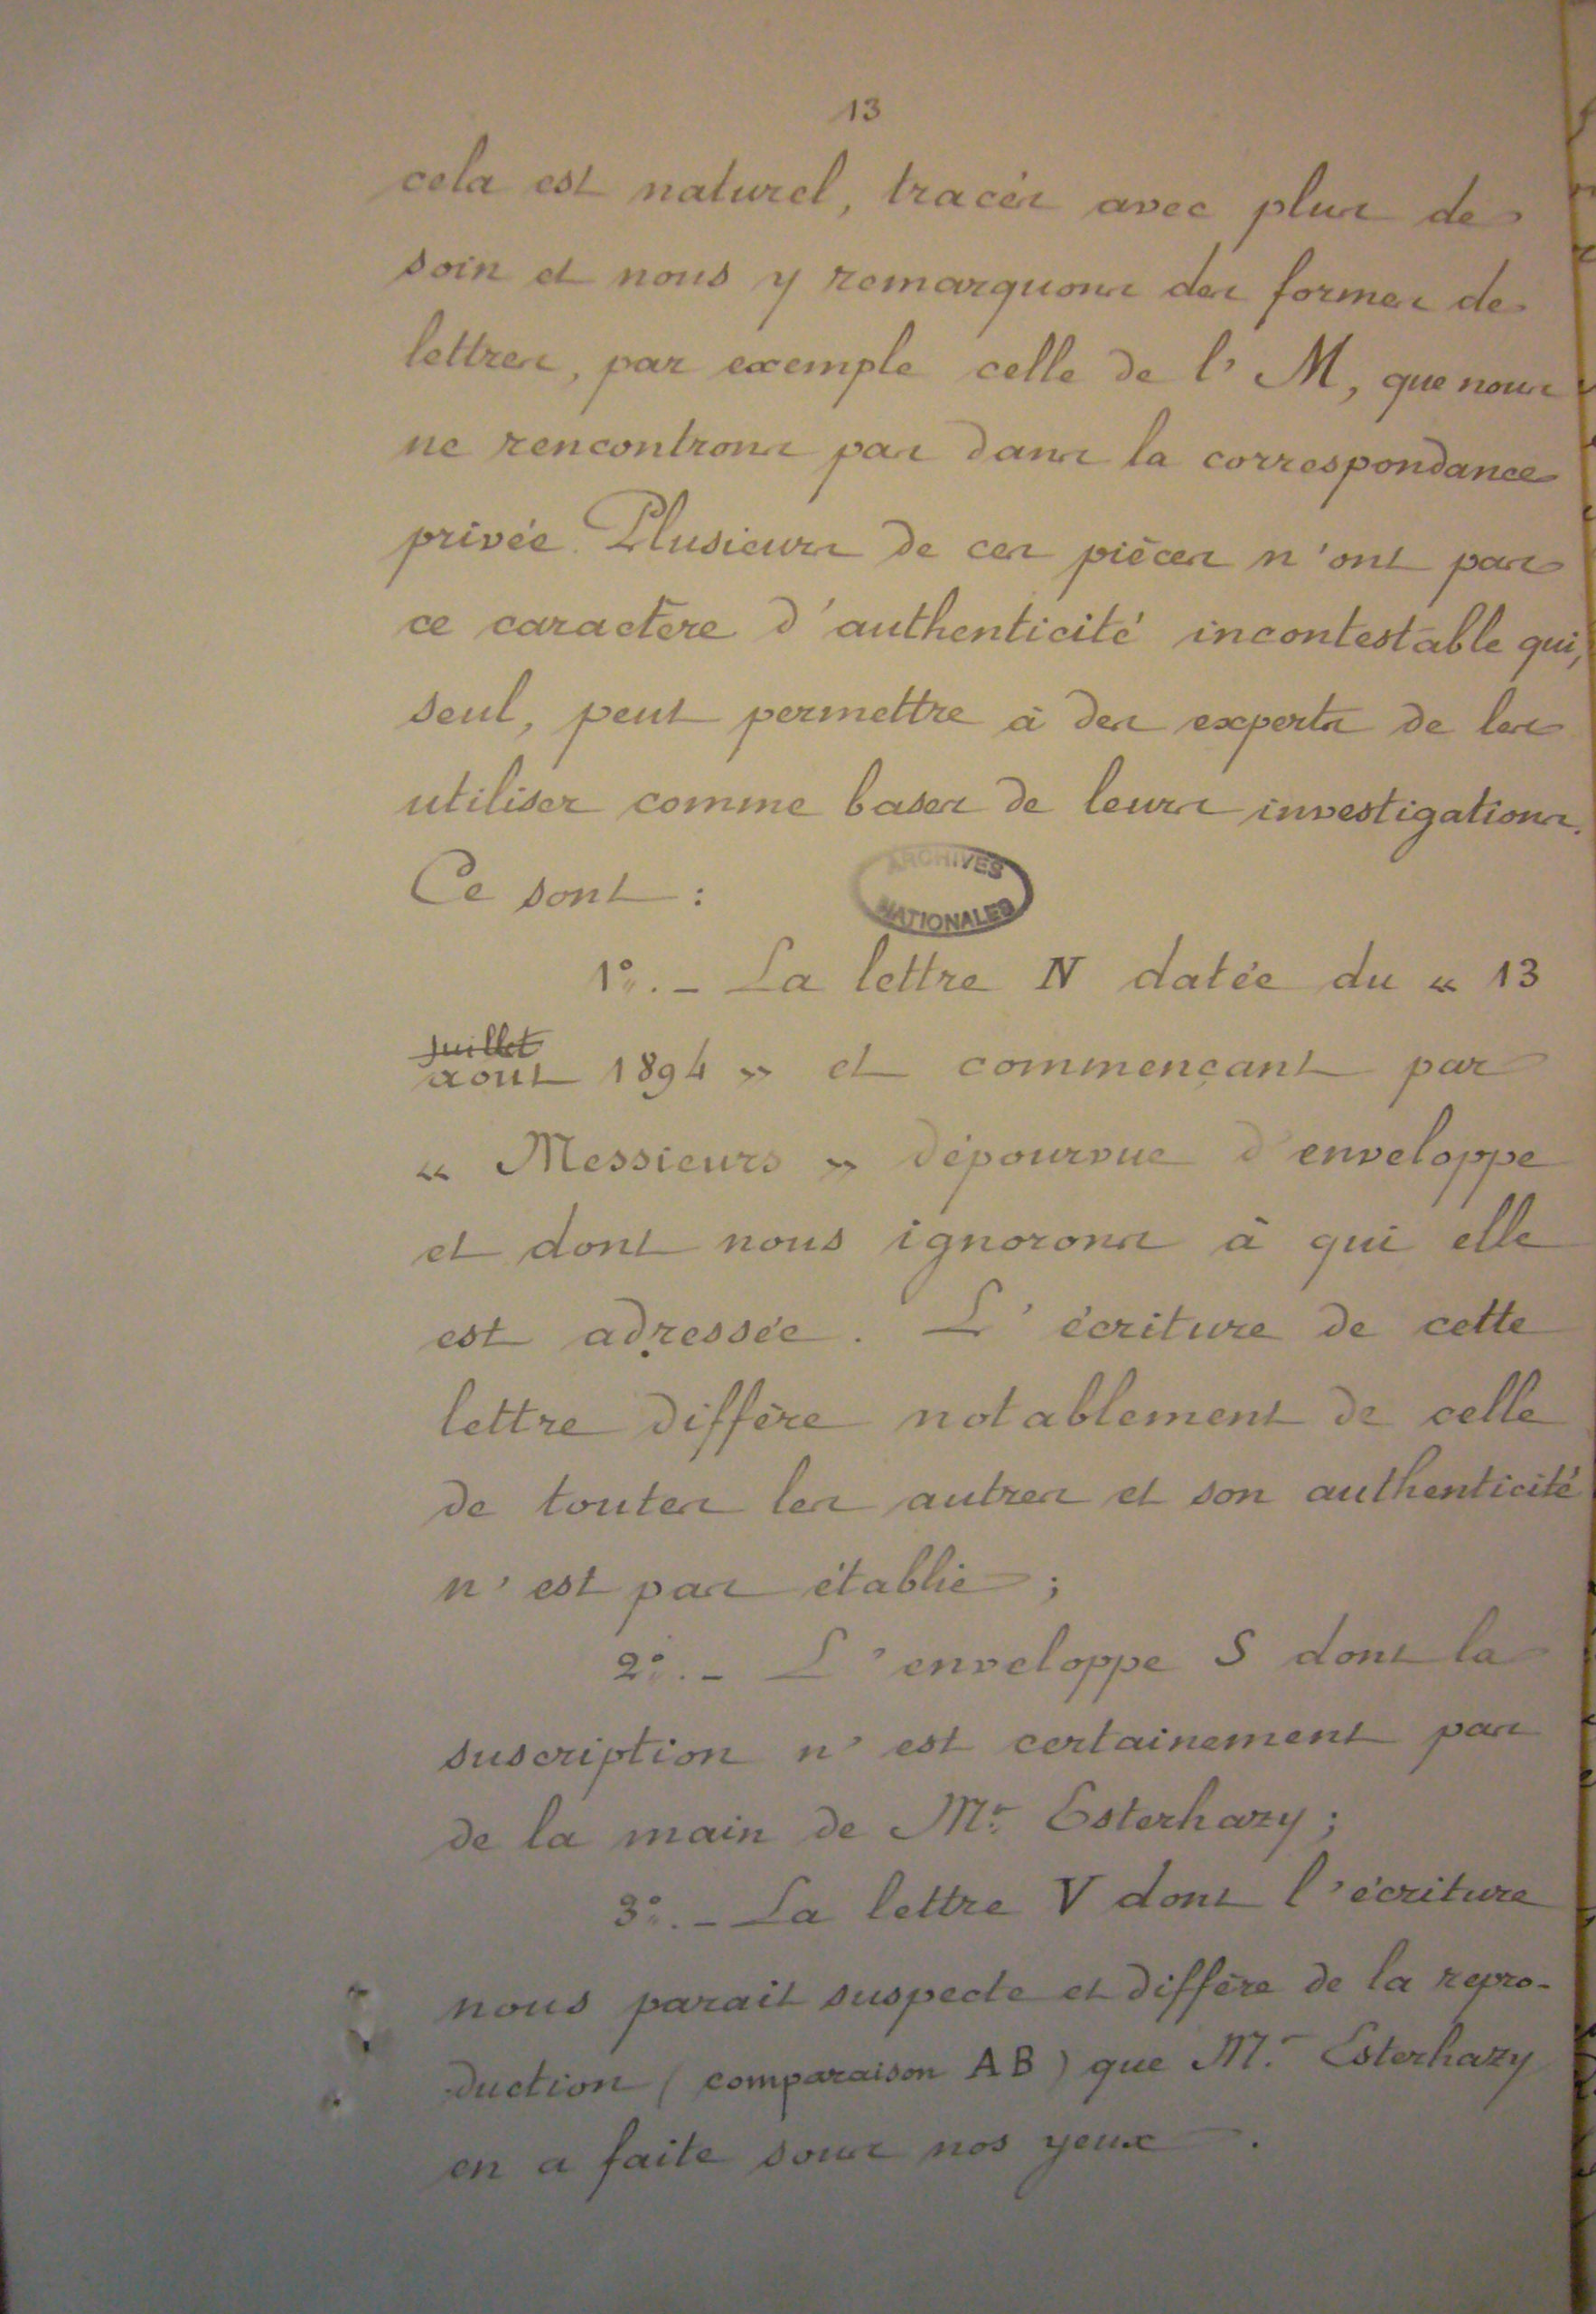 13
cela est naturel, tracés avec plus de
soin et nous y remarquons des formes de
lettres, par exemple celle de l'M, que nous
ne rencontrons pas dans la correspondance
privée. Plusieurs de ces pièces n'ont pas
ce caractère d'authenticité incontestable qui,
seul, peut permettre à des experts de les
utiliser comme bases de leurs investigations.
Ce sont :
ARCHIVES
NATIONALES
1°. - La lettre N datée du « 13
Juillet
aout 1894 » et commençant par
« Messieurs » dépourvue d'enveloppe
et dont nous ignorons à qui elle
est adressée. L'écriture de cette
lettre diffère notablement de celle
de toutes les autres et son authenticité
n'est pas établie ;
2°. - L'enveloppe S dont la
suscription n'est certainement pas
de la main de Mr. Esterhazy ;
3°. - La lettre V dont l'écriture
nous parait suspecte et diffère de la repro-
duction (comparaison AB) que Mr. Esterhazy
en a faite sous nos yeux.